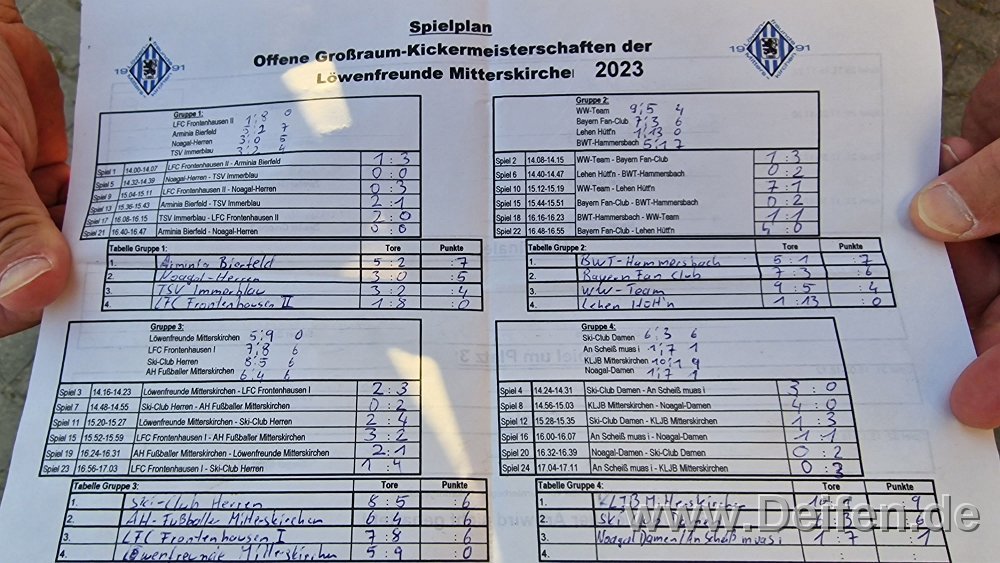 Spielplan
Offene Großraum-Kickermeisterschaften der
Löwenfreunde Mitterskirche 2023
19 91
19 91
Gruppe 1:
LFC Frontenhausen II 1:8 0
Arminia Bierfeld 5:2 7
Noagal-Herren 3:0 5
TSV Immerblau 3:2 4
Spiel 1 14.00-14.07 LFC Frontenhausen II - Arminia Bierfeld 1 : 3
Spiel 5 14.32-14.39 Noagal-Herren - TSV Immerblau 0 : 0
Spiel 9 15.04-15.11 LFC Frontenhausen II - Noagel-Herren 0 : 3
Spiel 13 15.36-15.43 Arminia Bierfeld - TSV Immerblau 2 : 1
Spiel 17 16.08-16.15 TSV Immerblau - LFC Frontenhausen II 2 : 0
Spiel 21 16.40-16.47 Arminia Bierfeld - Noagal-Herren 0 : 0
Tabelle Gruppe 1: Tore Punkte
1. Arminia Bierfeld 5 : 2 : 7
2. Noagal-Herren 3 : 0 : 5
3. TSV Immerblau 3 : 2 : 4
4. LFC Frontenhausen II 1 : 8 : 0
Gruppe 2:
WW-Team 9:5 4
Bayern Fan-Club 7:3 6
Lehen Hütt'n 1:13 0
BWT-Hammersbach 5:1 7
Spiel 2 14.08-14.15 WW-Team - Bayern Fan-Club 1 : 3
Spiel 6 14.40-14.47 Lehen Hütt'n - BWT-Hammersbach 0 : 2
Spiel 10 15.12-15.19 WW-Team - Lehen Hütt'n 7 : 1
Spiel 15 15.44-15.51 Bayern Fan-Club - BWT-Hammersbach 0 : 2
Spiel 18 16.16-16.23 BWT-Hammersbach - WW-Team 1 : 1
Spiel 22 16.48-16.55 Bayern Fan-Club - Lehen Hütt'n 4 : 0
Tabelle Gruppe 2: Tore Punkte
1. BWT-Hammersbach 5 : 1 : 7
2. Bayern Fan Club 7 : 3 : 6
3. WW-Team 9 : 5 : 4
4. Lehen Hütt'n 1 : 13 : 0
Gruppe 3:
Löwenfreunde Mitterskirchen 5:9 0
LFC Frontenhausen I 7:8 6
Ski-Club Herren 8:5 6
AH Fußballer Mitterskirchen 6:4 6
Spiel 3 14.16-14.23 Löwenfreunde Mitterskirchen - LFC Frontenhausen I 2 : 3
Spiel 7 14.48-14.55 Ski-Club Herren - AH Fußballer Mitterskirchen 0 : 2
Spiel 11 15.20-15.27 Löwenfreunde Mitterskirchen - Ski-Club Herren 2 : 4
Spiel 15 15.52-15.59 LFC Frontenhausen I - AH Fußballer Mitterskirchen 3 : 2
Spiel 19 16.24-16.31 AH Fußballer Mitterskirchen - Löwenfreunde Mitterskirchen 2 : 1
Spiel 23 16.56-17.03 LFC Frontenhausen I - Ski-Club Herren 1 : 4
Tabelle Gruppe 3: Tore Punkte
1. Ski-Club Herren 8 : 5 : 6
2. AH-Fußballer Mitterskirchen 6 : 4 : 6
3. LFC Frontenhausen I 7 : 8 : 6
4. Löwenfreunde Mitterskirchen 5 : 9 : 0
Gruppe 4:
Ski-Club Damen 6:3 6
An Scheiß muas i 1:7 1
KLJB Mitterskirchen 10:1 9
Noagal-Damen 1:7 1
Spiel 4 14.24-14.31 Ski-Club Damen - An Scheiß muas i 3 : 0
Spiel 8 14.56-15.03 KLJB Mitterskirchen - Noagal-Damen 4 : 0
Spiel 12 15.28-15.35 Ski-Club Damen - KLJB Mitterskirchen 1 : 3
Spiel 16 16.00-16.07 An Scheiß muas i - Noagal-Damen 1 : 1
Spiel 20 16.32-16.39 Noagal-Damen - Ski-Club Damen 0 : 2
Spiel 24 17.04-17.11 An Scheiß muas i - KLJB Mitterskirchen 0 : 3
Tabelle Gruppe 4: Tore Punkte
1. KLJB : 9
2. Ski : 6
3. Noagal Damen/An Scheiß muas i 1 : 7 : 1
4. : :
www.Deffen.de